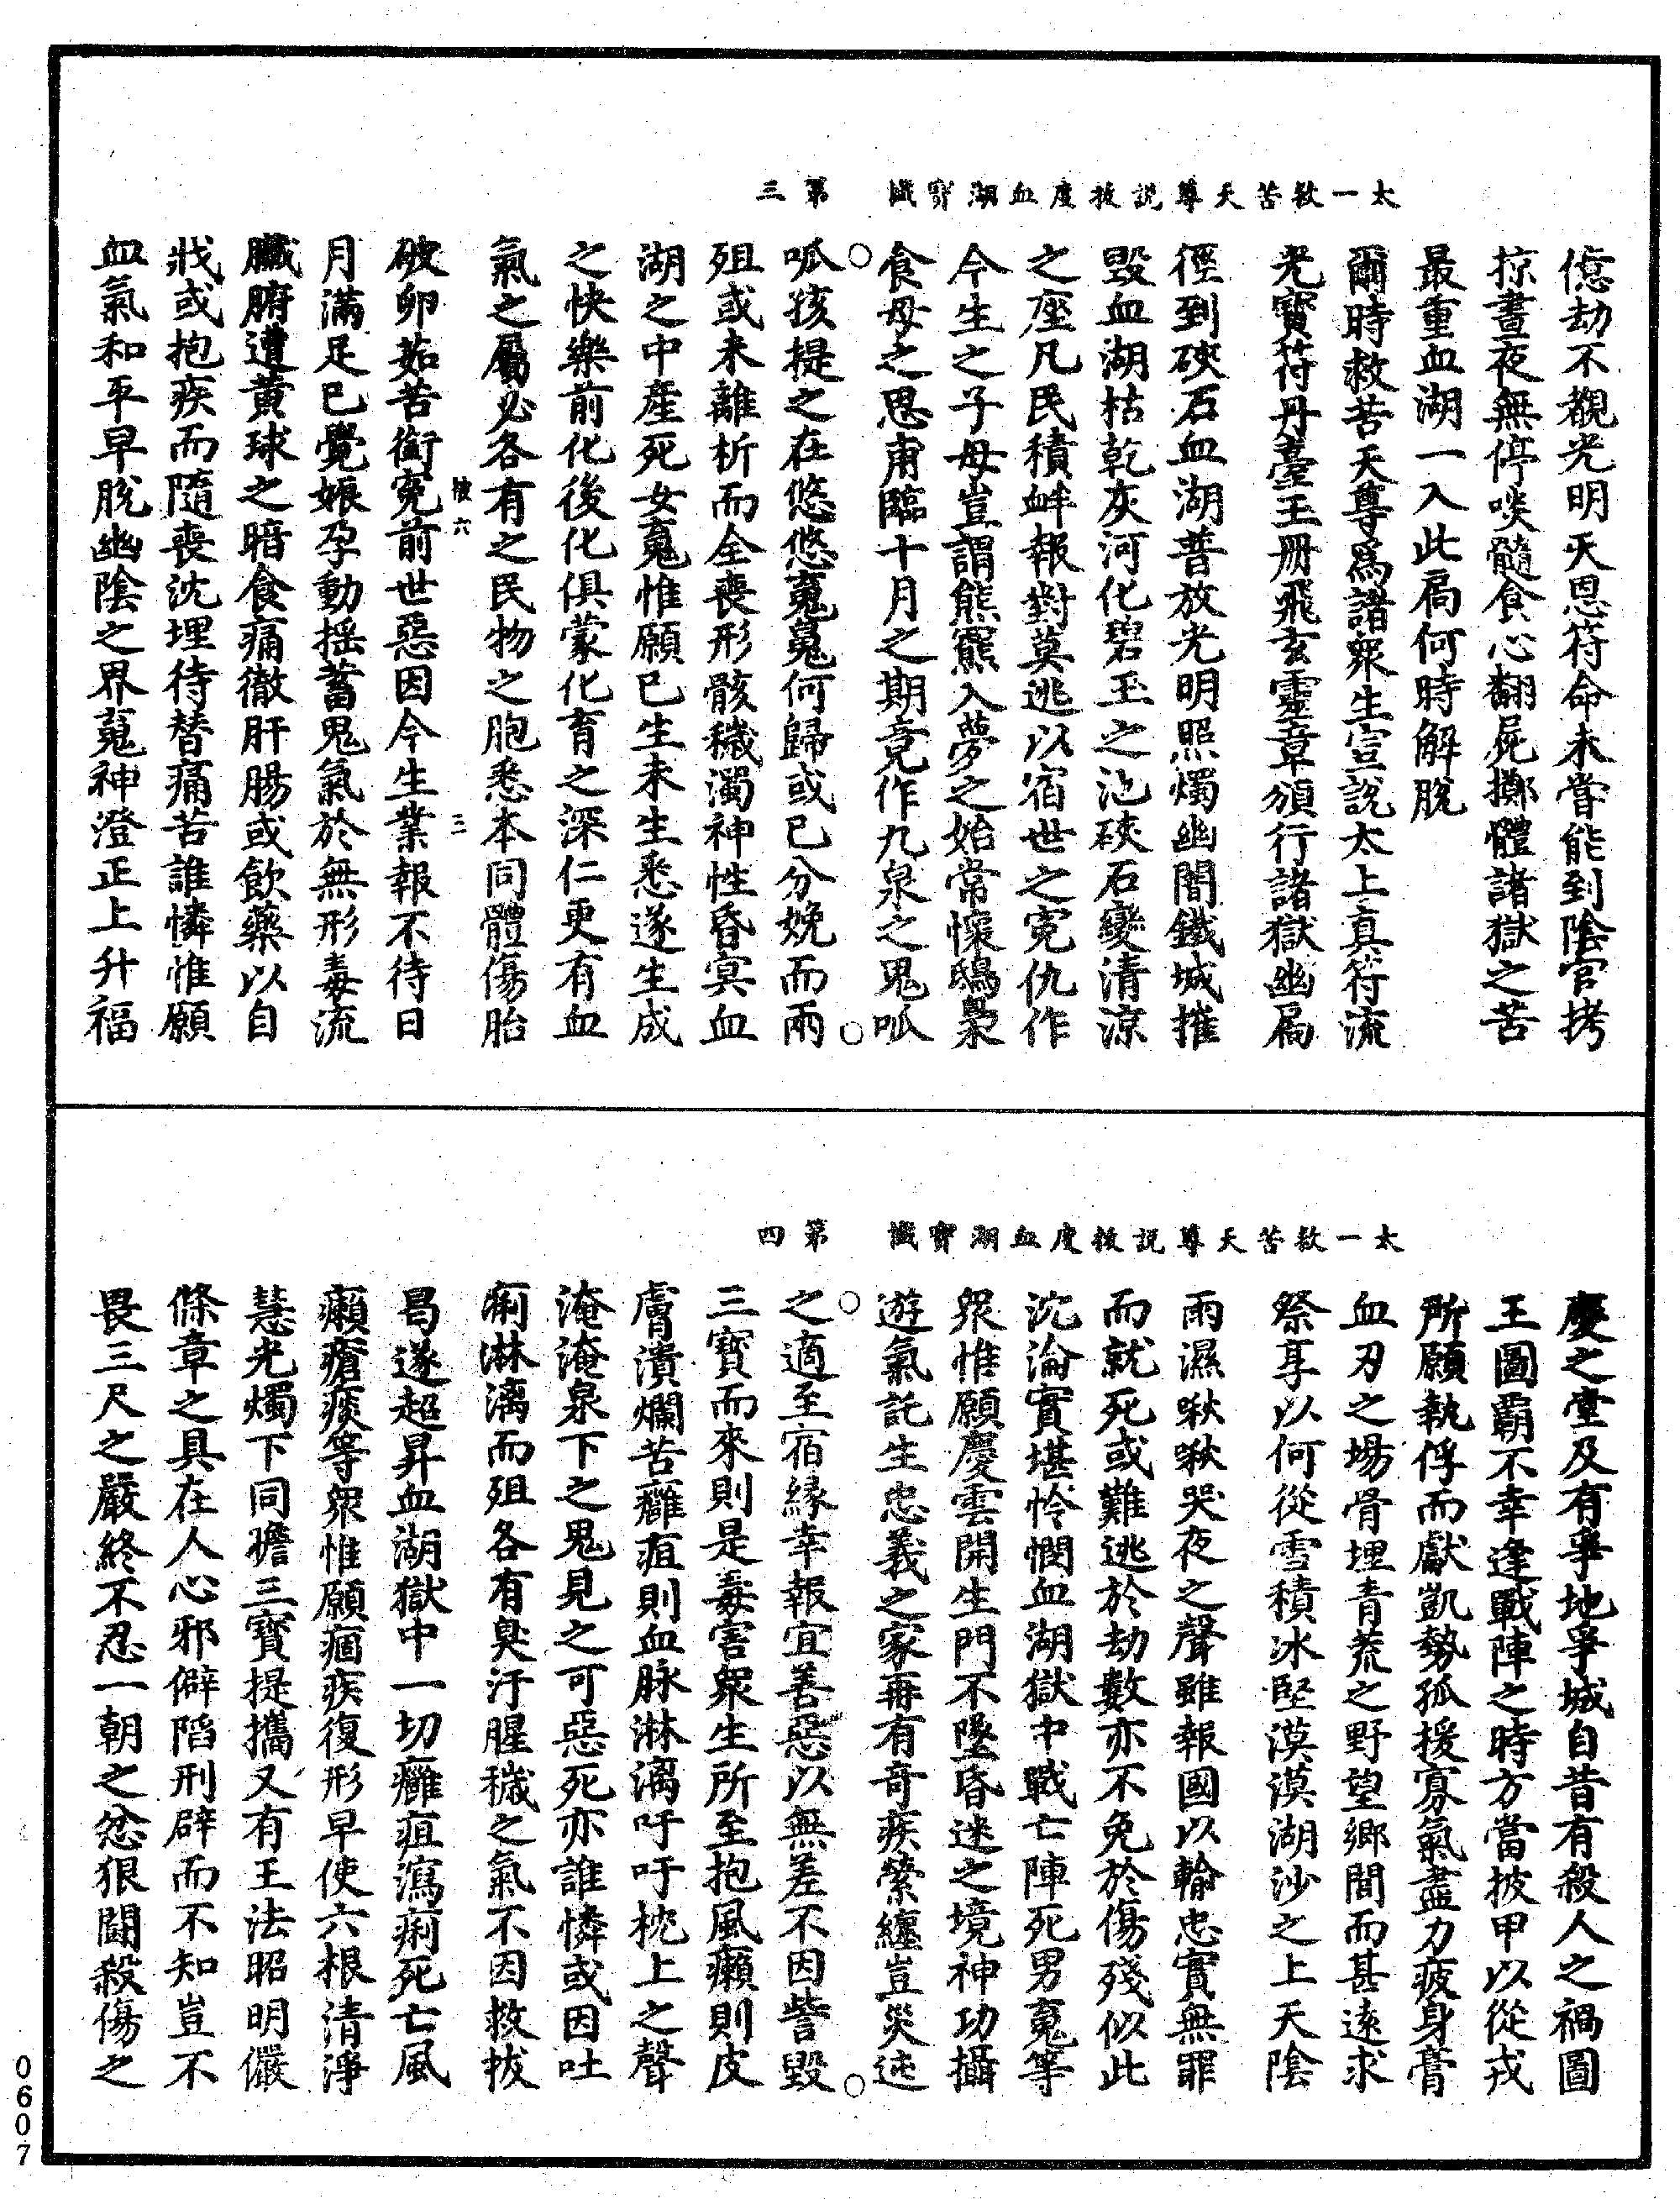 太一救苦天尊說拔度血湖寶懺　第三
億劫不覩光明天恩符命未嘗能到陰官拷
掠晝夜無停啖髓食心翻屍擲體諸獄之苦
最重血湖一入此扃何時解脫
爾時救苦天尊爲諸衆生宣說太上真符流
光寶符丹臺玉冊飛玄靈章頒行諸獄幽扃
徑到硤石血湖普放光明照燭幽闇鐵城摧
毀血湖枯乾灰河化碧玉之池硤石變清涼
之座凡民積衅報對莫逃以宿世之冤仇作
今生之子母豈謂熊羆入夢之始常懷鴟梟
食母之思甫臨十月之期竟作九泉之鬼呱
呱孩提之在悠悠䰟䰟何歸或已分娩而兩
殂或未離析而全喪形骸穢濁神性昏冥血
湖之中產死女䰟惟願已生未生悉遂生成
之快樂前化後化俱蒙化育之深仁更有血
氣之屬必各有之民物之胞悉本同體傷胎
破卵茹苦銜冤前世惡因今生業報不待日
月滿足已覺娠孕動摇蓄鬼氣於無形毒流
臟腑遭黄球之暗食痛徹肝腸或飲藥以自
戕或抱疾而隨喪沈埋待替痛苦誰憐惟願
血氣和平早脫幽陰之界䰟神澄正上升福
太一救苦天尊說拔度血湖寶懺　第四
慶之堂及有爭地爭城自昔有殺人之禍圖
王圖霸不幸逢戰陣之時方當披甲以從戎
所願執俘而獻凱勢孤援寡氣盡力疲身膏
血刃之場骨埋青荒之野望鄉閭而甚遠求
祭享以何從雪積冰堅漠漠湖沙之上天陰
雨濕啾啾哭夜之聲雖報國以輸忠實無罪
而就死或難逃於劫數亦不免於傷殘似此
沉淪實堪怜憫血湖獄中戰亡陣死男䰟等
衆惟願慶雲開生門不墜昏迷之境神功攝
遊氣託生忠義之家再有奇疾縈纏豈災迍
之適至宿縁幸報宜善惡以無差不因訾毀
三寶而來則是毒害衆生所至抱風癩則皮
膚潰爛苦癰疽則血脉淋漓吁吁枕上之聲
淹淹泉下之鬼見之可惡死亦誰憐或因吐
痢淋漓而殂各有臭汙腥穢之氣不因救拔
曷遂超昇血湖獄中一切癰疽瀉痢死亡風
癩瘡痰等衆惟願痼疾復形早使六根清淨
慧光燭下同瞻三寶提攜又有王法昭明儼
條章之具在人心邪僻陷刑辟而不知豈不
畏三尺之嚴終不忍一朝之忿狠鬪殺傷之
0607